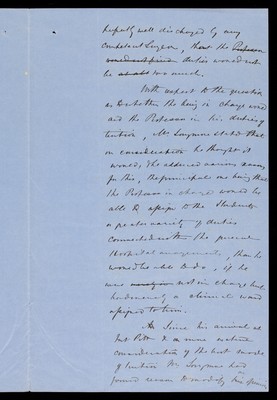 perfectly well discharged by any
competent Surgeon, that the Professor
duties would not
be too much.
With respect to the question
as to whether the being in charge would
aid the Professor in his duties of
tuition, Mr Longmore stated that
on consideration he thought it
would; He adduced various reasons
for this, the principal one being that
the Professor in charge would be
able to assign to the Students
a greater variety of duties
connected with the
Hospital arrangements, than he
would be able to do, if he
was not in charge but
had a clinical ward
assigned to him.
Since his arrival at
Fort Pitt & a more mature
consideration of the best modes
of tuition Mr Longmore had
found reason to modify his